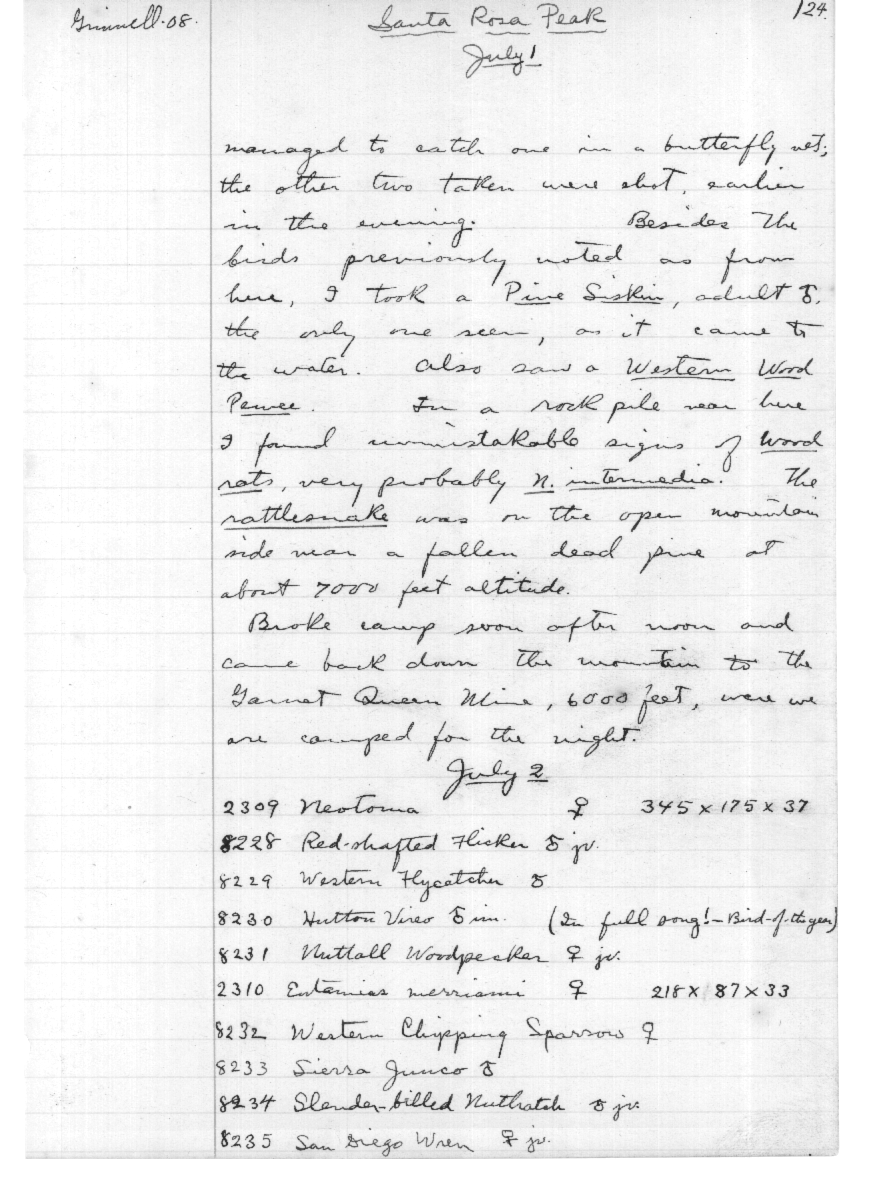 Grinnell-08.
Santa Rosa Peak
124
July 1
managed to catch one in a butterfly net;
the other two taken were shot, earlier
in the evening. Besides the
birds previously noted as from
here, I took a Pine Siskin, adult ♂,
the only one seen, as it came to
the water. Also saw a Western Wood
Pewee. In a rock pile near here
I found unmistakable signs of wood
rats, very probably N. intermedia. The
rattlesnake was on the open mountain
side near a fallen dead pine at
about 7000 feet altitude.
Broke camp soon after noon and
came back down the mountain to the
Garnet Queen Mine, 6000 feet, were we
are camped for the night.
July 2
2309 Neotoma ♀ 345 x 175 x 37
8228 Red-shafted Flicker ♂ jv.
8229 Western Flycatcher ♂
8230 Hutton Vireo ♂ im. (In full song! - Bird-of-the-year)
8231 Nuttall Woodpecker ♀ jv.
2310 Eutamias merriami ♀ 218 x 87 x 33
8232 Western Chipping Sparrow ♀
8233 Sierra Junco ♂
8234 Slender-billed Nuthatch ♂ jv.
8235 San Diego Wren ♀ jv.